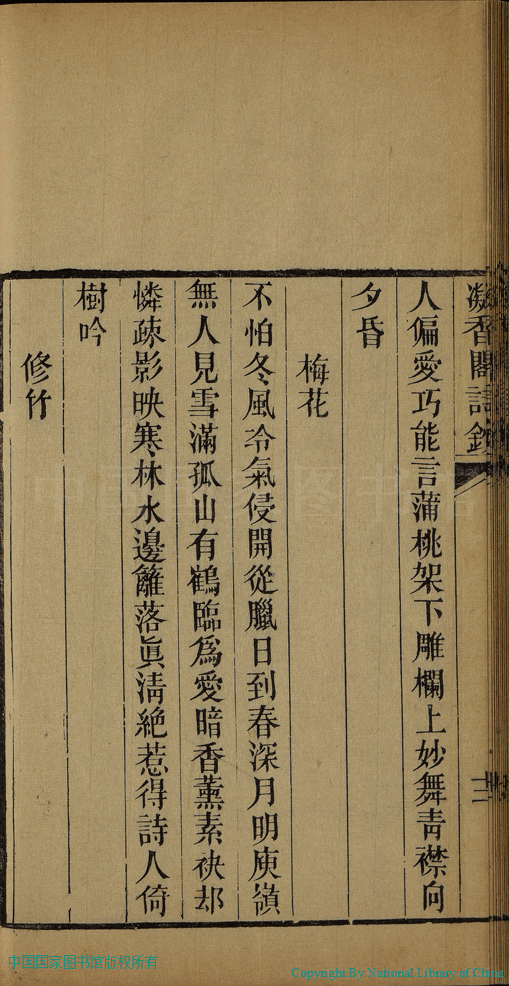 凝香閣詩鈔
十二
人偏愛巧能言蒲桃架下雕欄上妙舞青襟向
夕昏
梅花
不怕冬風冷氣侵開從臘日到春深月明庾嶺
無人見雪滿孤山有鶴臨爲愛暗香薰素袂却
憐疎影映寒林水邊籬落眞淸絶惹得詩人倚
樹吟
修竹
中国国家图书馆版权所有
Copyright By National Library of China